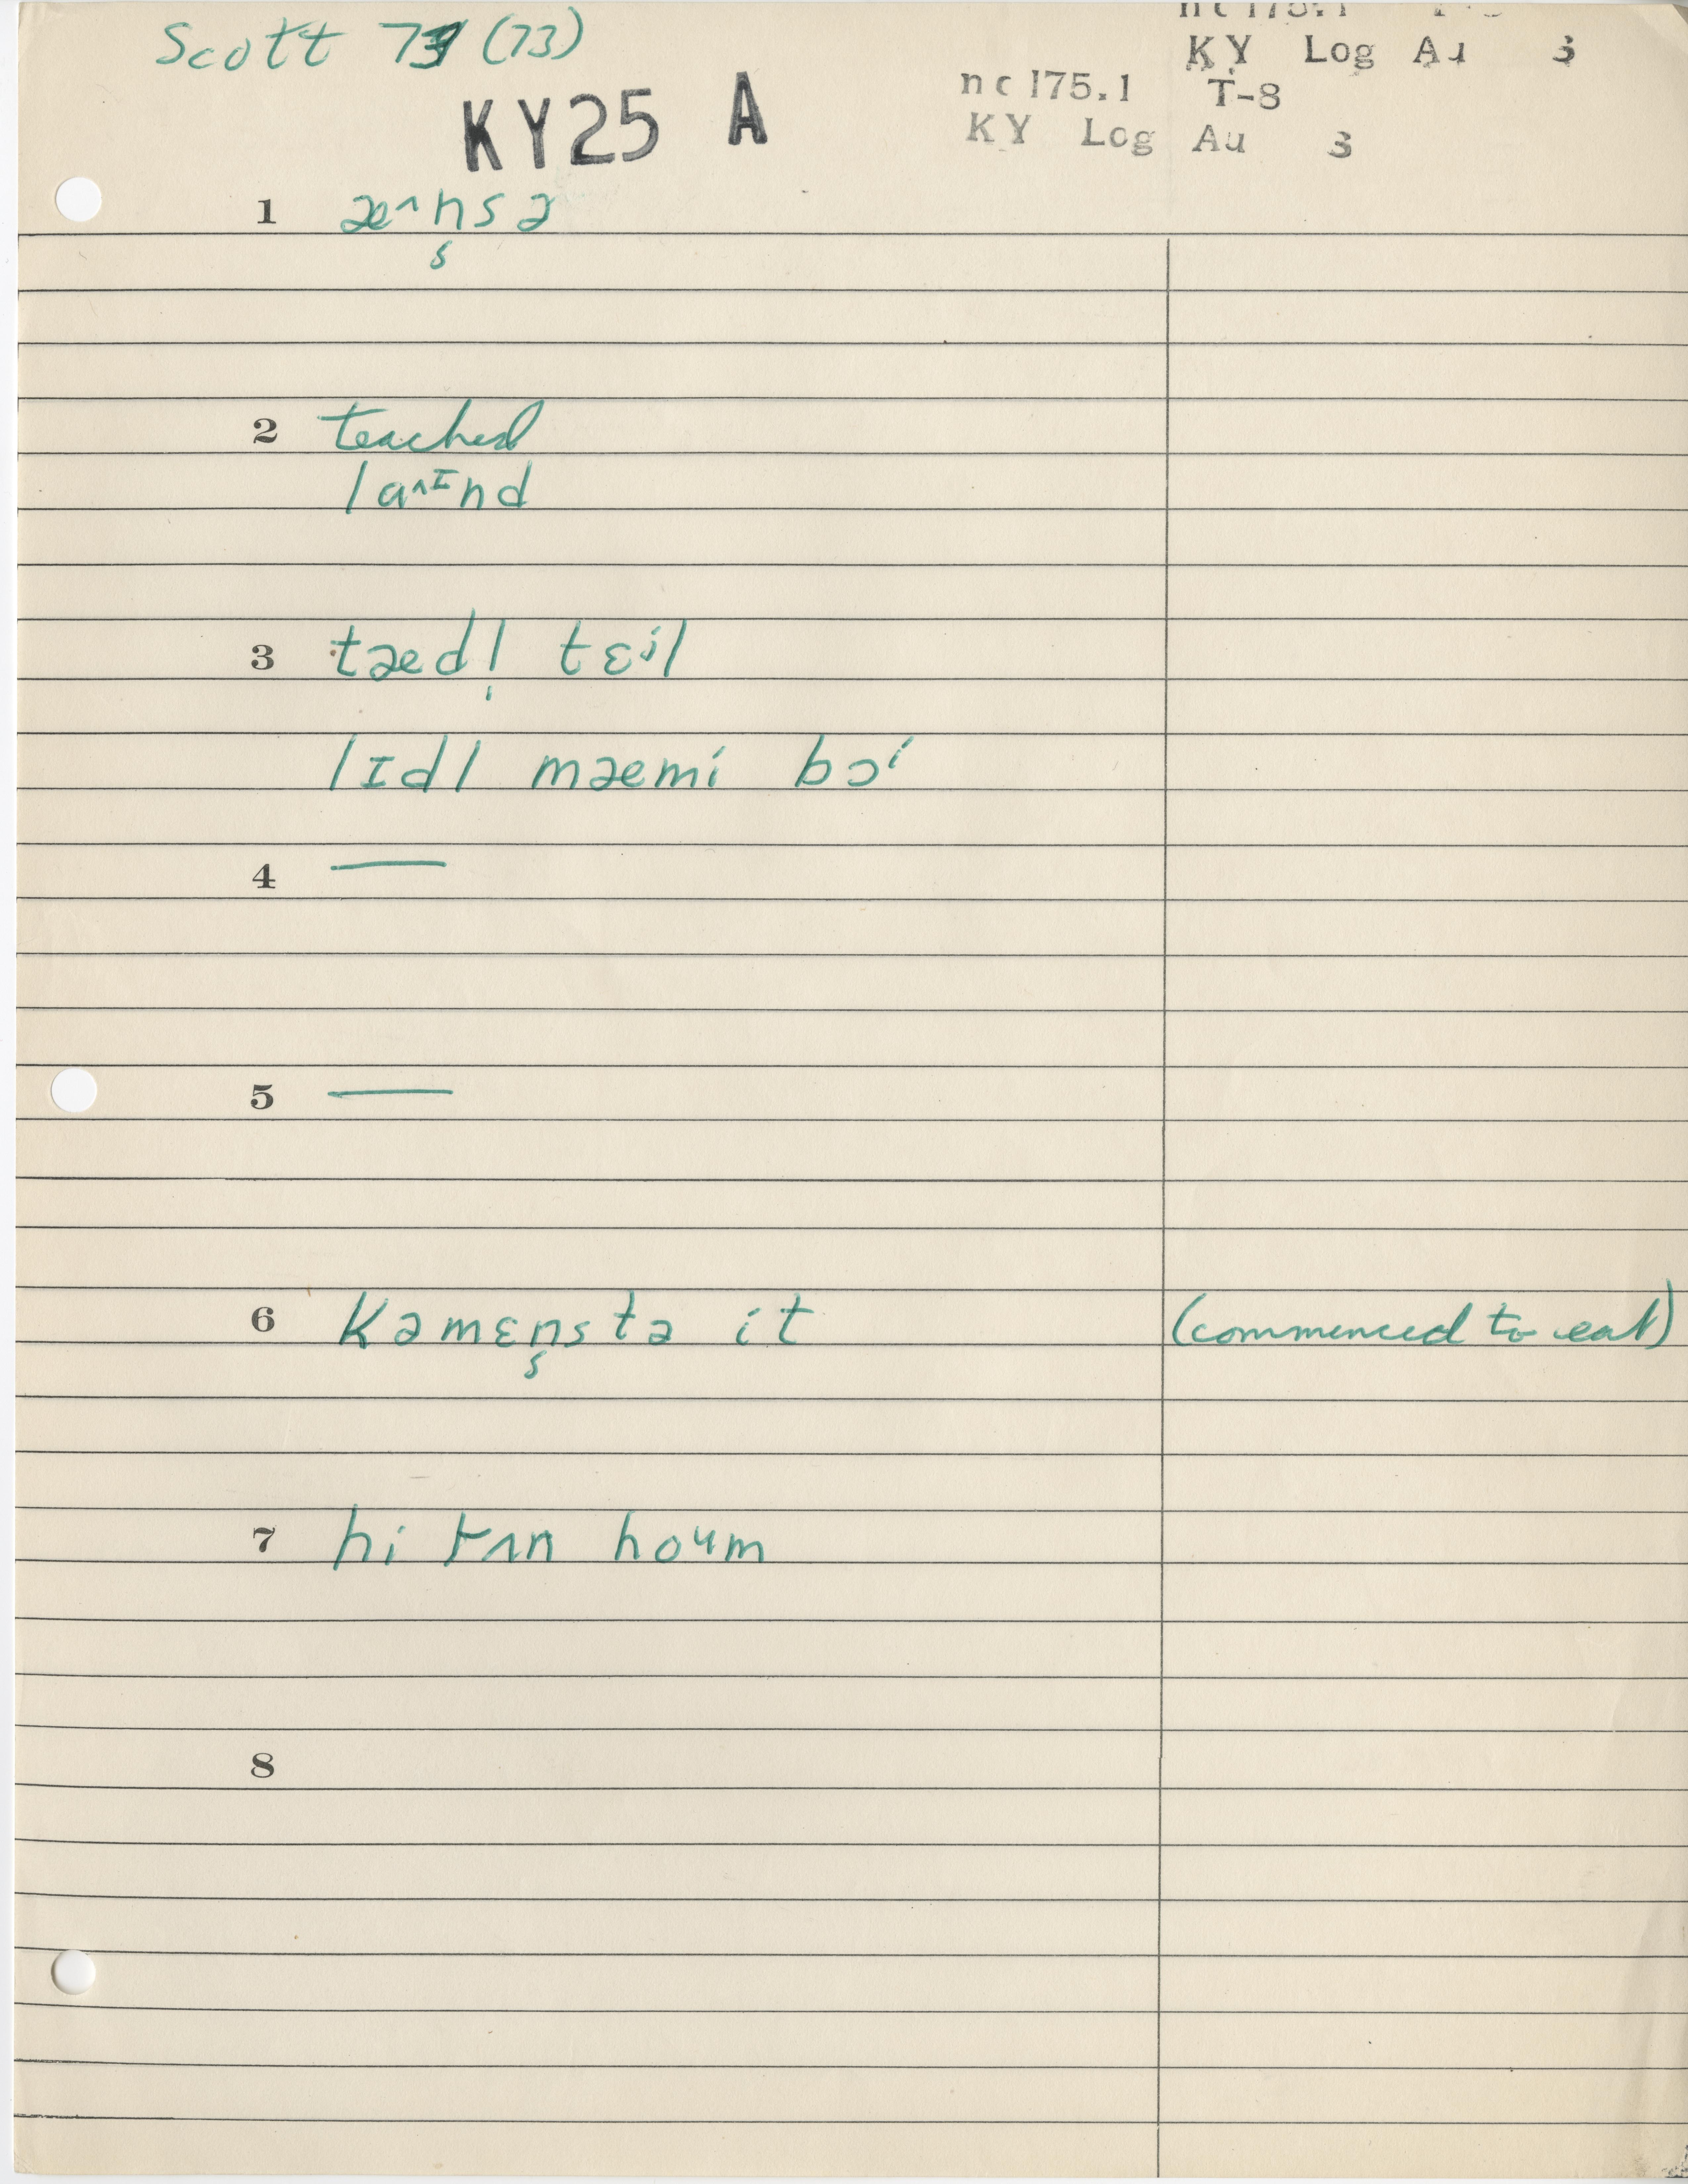 Scott 73 (73)
KY Log Au 3
nc 175.1 T-8
KY25 A
KY Log Au 3
1 æ^nsə
s
2 teached
laᶺɪnd
3 tædl̩ tɛⁱl
lɪdl mæmi bɔⁱ
4 —
5 —
6 Kəmɛnstə it (commenced to eat)
s
7 hi rʌn hoᶸm
8